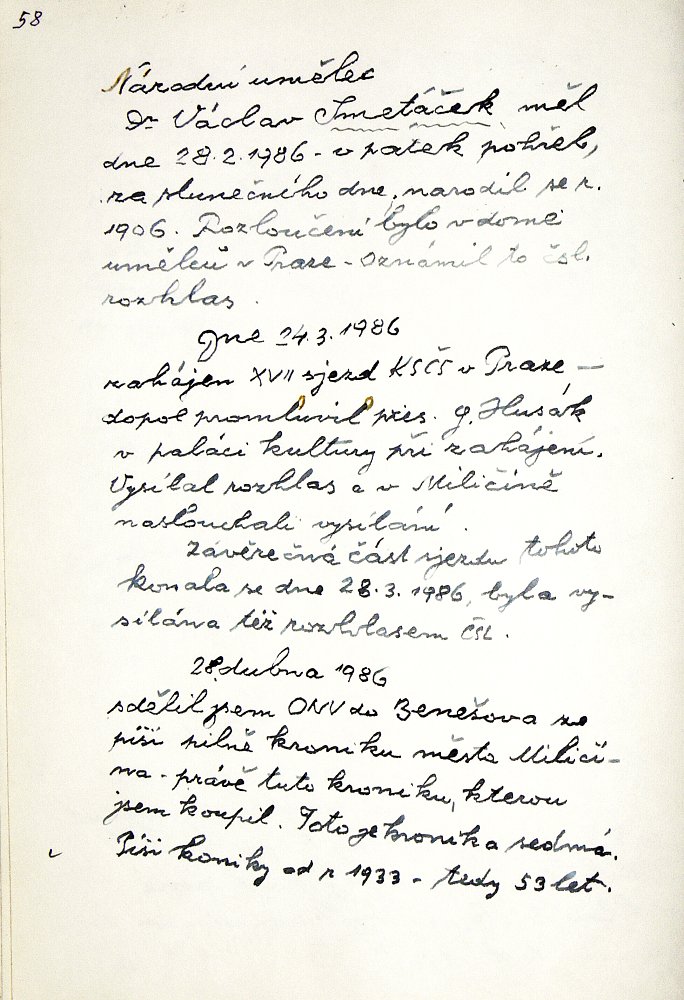 58
Národní umělec
Dr Václav Smetáček měl
dne 28.2.1986 - v pátek pohřeb,
za slunečního dne, narodil se r.
1906. Rozloučení bylo v domě
umělců v Praze - oznámil to čsl.
rozhlas.
Dne 24.3.1986
zahájen XVII sjezd KSČS v Praze -
dopol promluvil pres. G. Husák
v paláci kultury při zahájení.
Vysílal rozhlas a v Miličíně
naslouchali vysílání.
Závěrečná část sjezdu tohoto
konala se dne 28.3.1986, byla vy-
sílána též rozhlasem ČSL.
28. dubna 1986
sdělil jsem ONV do Benešova že
píši pilně kroniku města Miličí-
na - právě tuto kroniku, kterou
jsem koupil. Toto je kronika sedmá.
Píši koniky od r 1933 - tedy 53 let.